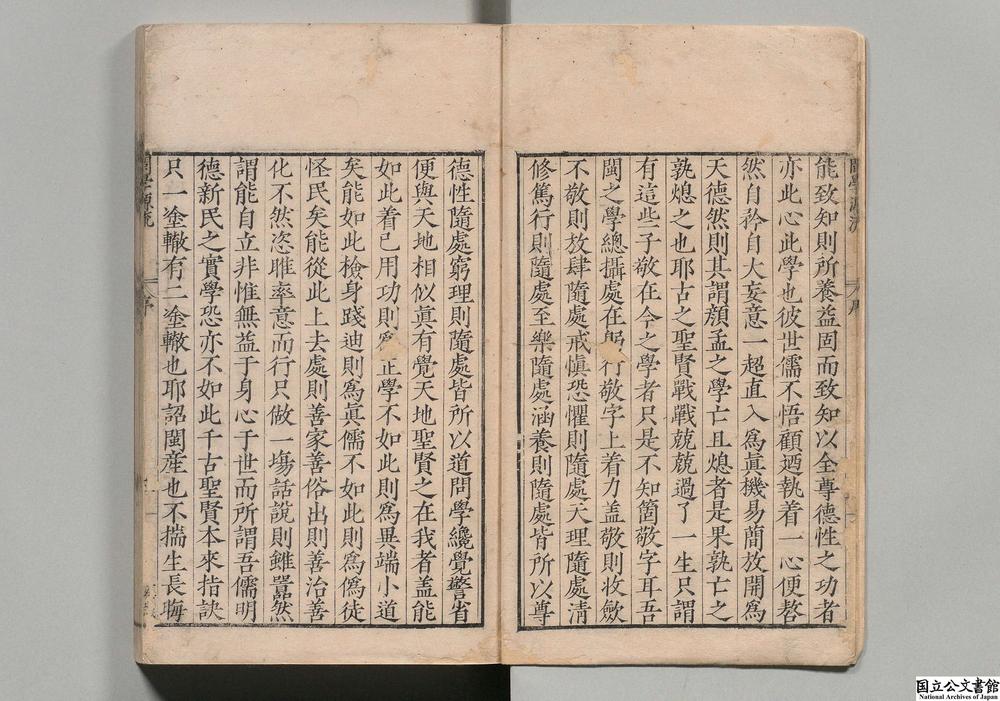 能致知則所養益固而致知以全尊德性之功者
亦此心此學也彼世儒不悟顧迺執着一心便嗒
然自矜自大妄意一超直入爲眞機易簡放開爲
天德然則其謂顏孟之學亡且熄者是果孰亡之
孰熄之也耶古之聖賢戰戰兢兢過了一生只謂
有這些子敬在今之學者只是不知箇敬字耳吾
閩之學總攝處在躬行敬字上着力盖敬則收歛
不敬則放肆隨處戒愼恐懼則隨處天理隨處清
修篤行則隨處至樂隨處涵養則隨處皆所以尊
德性隨處窮理則隨處皆所以道問學纔覺警省
便與天地相似眞有覺天地聖賢之在我者盖能
如此着已用功則爲正學不如此則爲異端小道
矣能如此檢身踐迪則爲眞儒不如此則爲僞徒
怪民矣能從此上去處則善家善俗出則善治善
化不然恣睢率意而行只做一塲話說則雖囂然
謂能自立非惟無益于身心于世而所謂吾儒明
德新民之實學恐亦不如此千古聖賢本來拮訣
只一塗轍有二塗轍也耶詔閩産也不揣生長晦
閩學源流
序
国立公文書館
National Archives of Japan